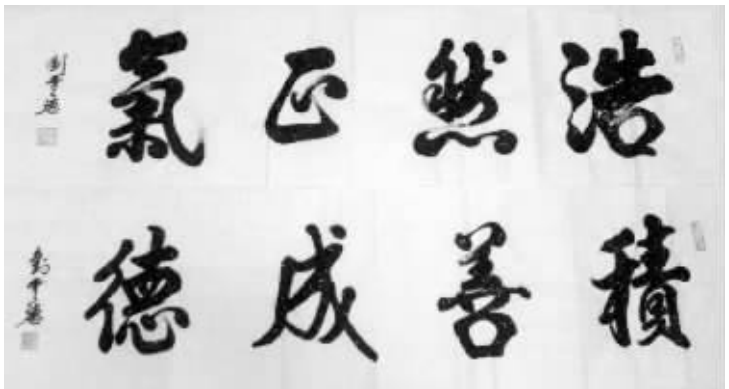 浩然正氣
積善成德